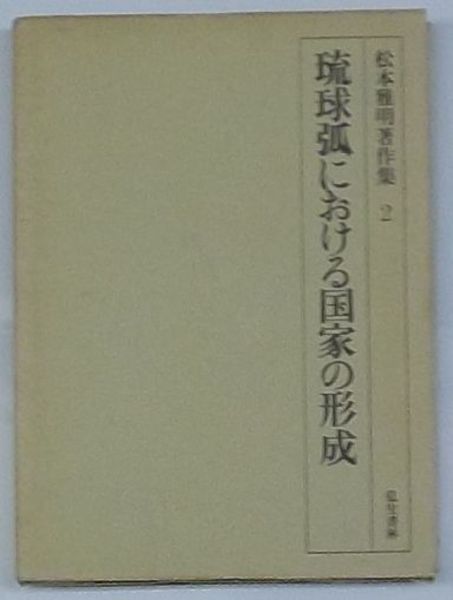 松本雅明著作集 2
琉球弧における国家の形成
弘生書林